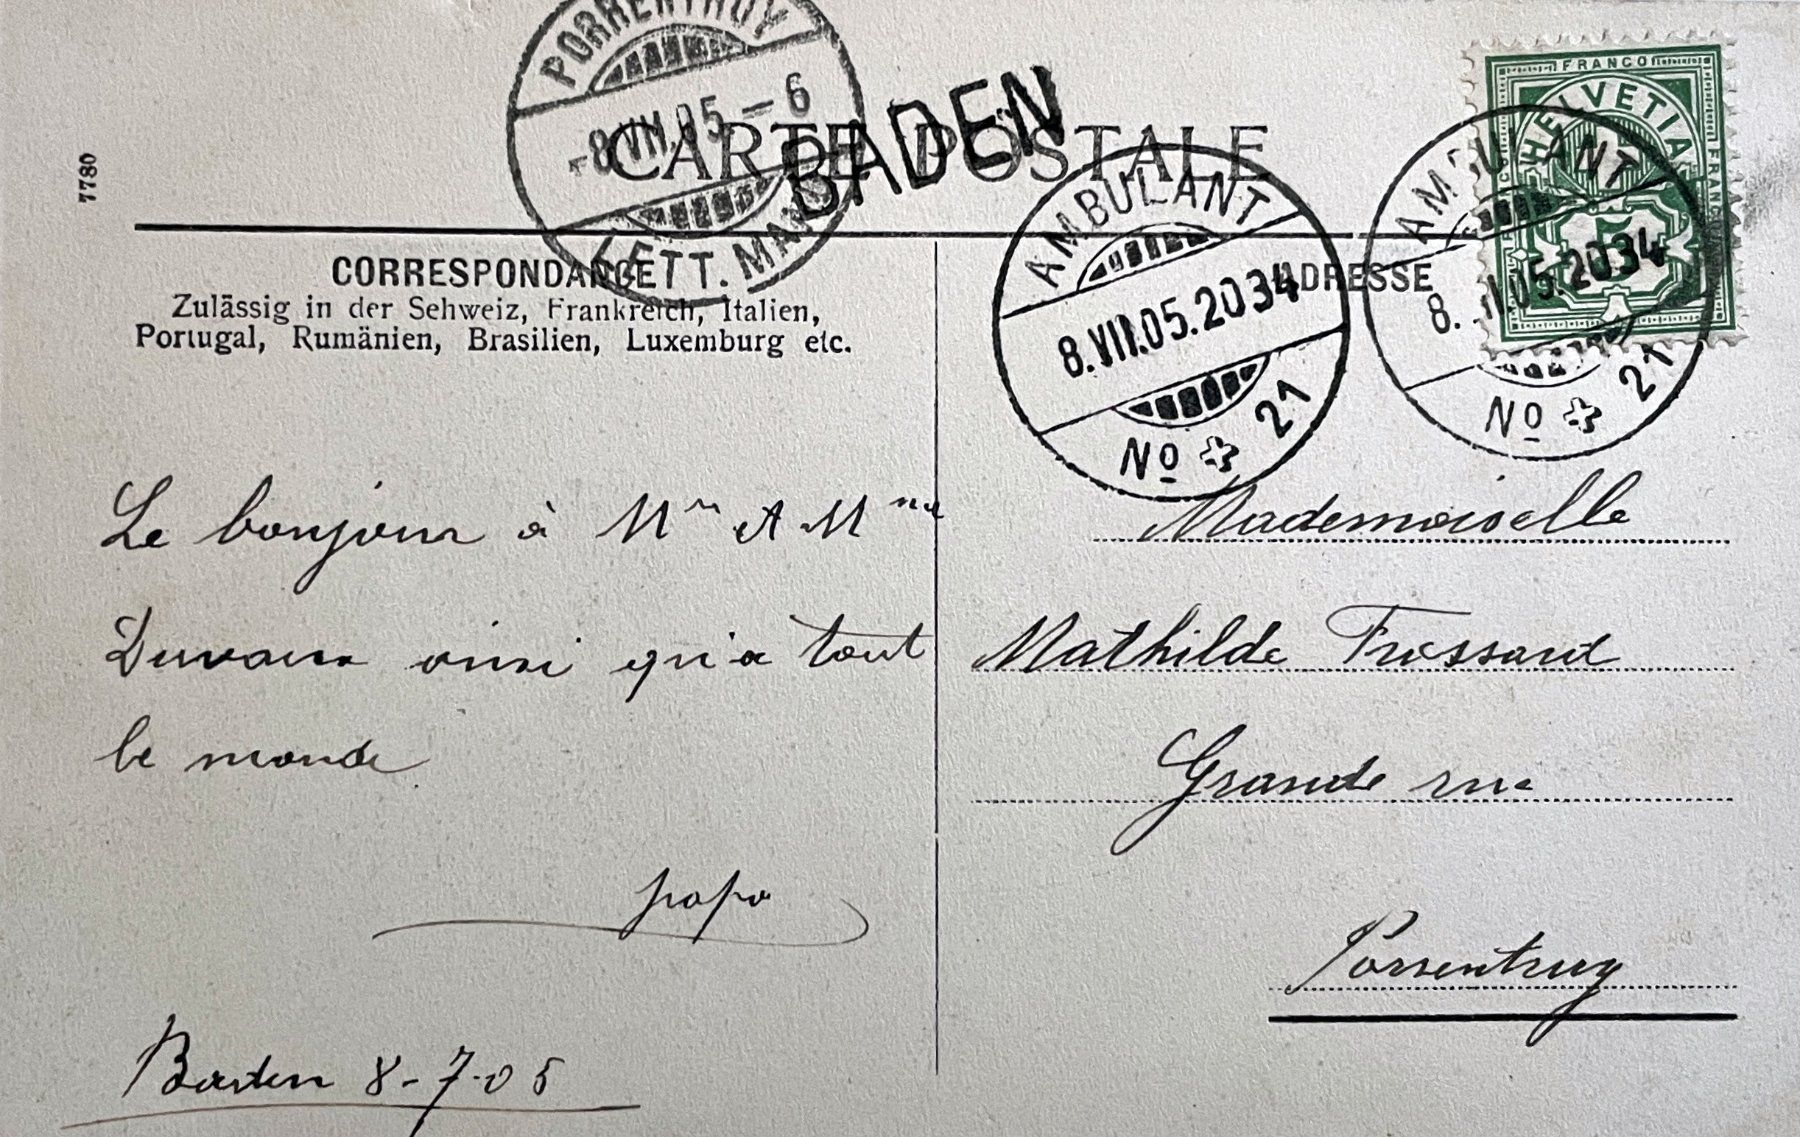 PORRENTRUY
-8.VII.05 – 6
LETT. MAND
BADEN
CARTE POSTALE
7780
FRANCO
HELVETIA
FRANCO
5
AMBULANT
8.VII.05.2034
No 21
AMBULANT
8.VII.05.2034
No 21
CORRESPONDANCE
Zulässig in der Schweiz, Frankreich, Italien,
Portugal, Rumänien, Brasilien, Luxemburg etc.
ADRESSE
Le bonjour à Mr et Mme
Duvaux ainsi qu'a tout
le monde
papa
Baden 8-7-05
Mademoiselle
Mathilde Frossard
Grande rue
Porrentruy